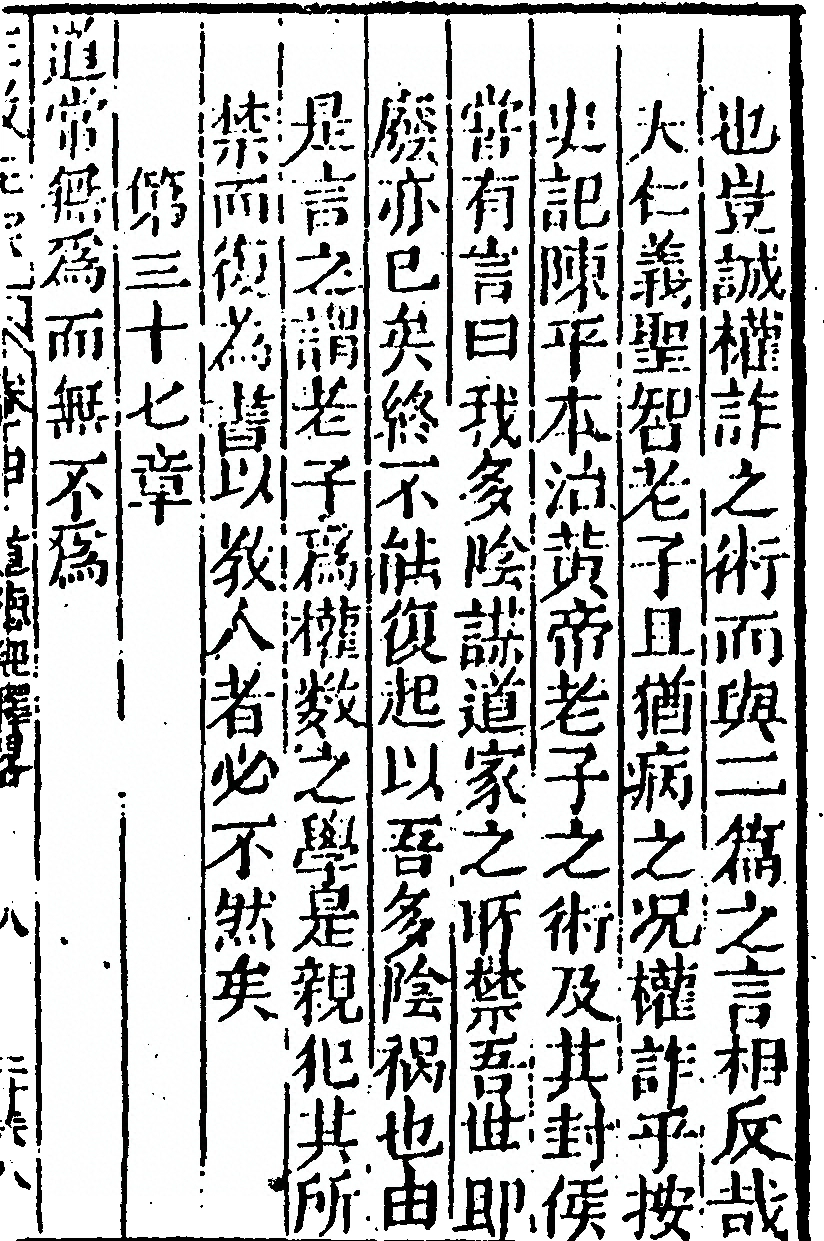 也豈誠權詐之術而與二篇之言相反哉
夫仁義聖智老子且猶病之况權詐乎按
史記陳平本治黃帝老子之術及其封侯
嘗有言曰我多陰謀道家之所禁吾世即
廢亦已矣終不能復起以吾多陰禍也由
是言之謂老子爲權數之學是親犯其所
禁而復為書以教人者必不然矣
第三十七章
道常無爲而無不爲